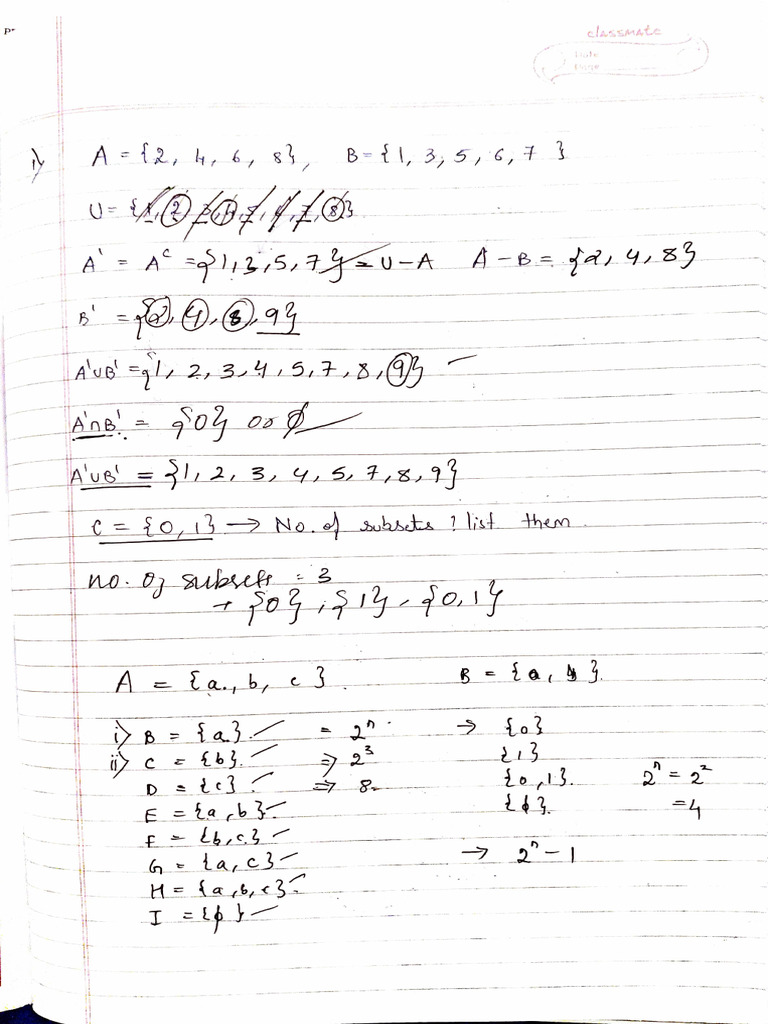 classmate
Date
Page
i) A = {2, 4, 6, 8}, B = {1, 3, 5, 6, 7}
U = {1, 2, 3, 4, 5, 6, 7, 8}
A' = Aᶜ = {1, 3, 5, 7} = U - A A - B = {2, 4, 8}
B' = {2, 4, 8, 9}
A'∪B' = {1, 2, 3, 4, 5, 7, 8, 9}
A'∩B' = {0} or ϕ
A'∪B' = {1, 2, 3, 4, 5, 7, 8, 9}
C = {0, 1} → No. of subsets ? list them.
no. of subsets = 3
→ {0}, {1}, {0, 1}
A = {a, b, c}. B = {0, 1}.
i) B = {a}. = 2ⁿ. → {0}
ii) C = {b}. ⇒ 2³ {1}
D = {c} ⇒ 8. {0, 1}. 2ⁿ = 2²
E = {a, b} {ϕ}. = 4
F = {b, c}
G = {a, c} → 2ⁿ - 1
H = {a, b, c}
I = {ϕ}